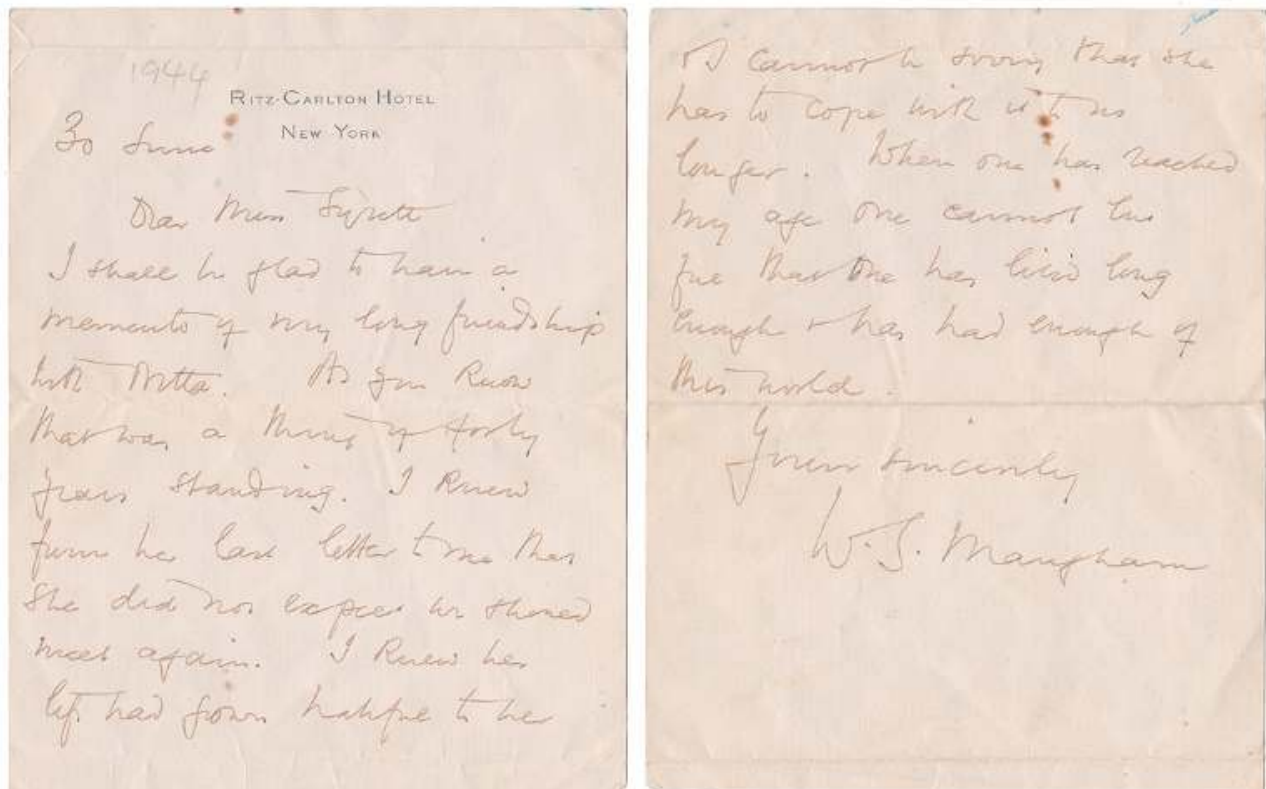 1944
RITZ-CARLTON HOTEL
NEW YORK
30 June
Dear Miss Syrett
I shall be glad to have a
memento of my long friendship
with Netta. As you know
that was a thing of forty
years standing. I knew
from her last letter to me that
she did not expect we should
meet again. I knew her
life had grown hateful to her
& I cannot be sorry that she
has to cope with it no
longer. When one has reached
my age one cannot but
feel that one has lived long
enough & has had enough of
this world.
Yours sincerely
W.S. Maugham